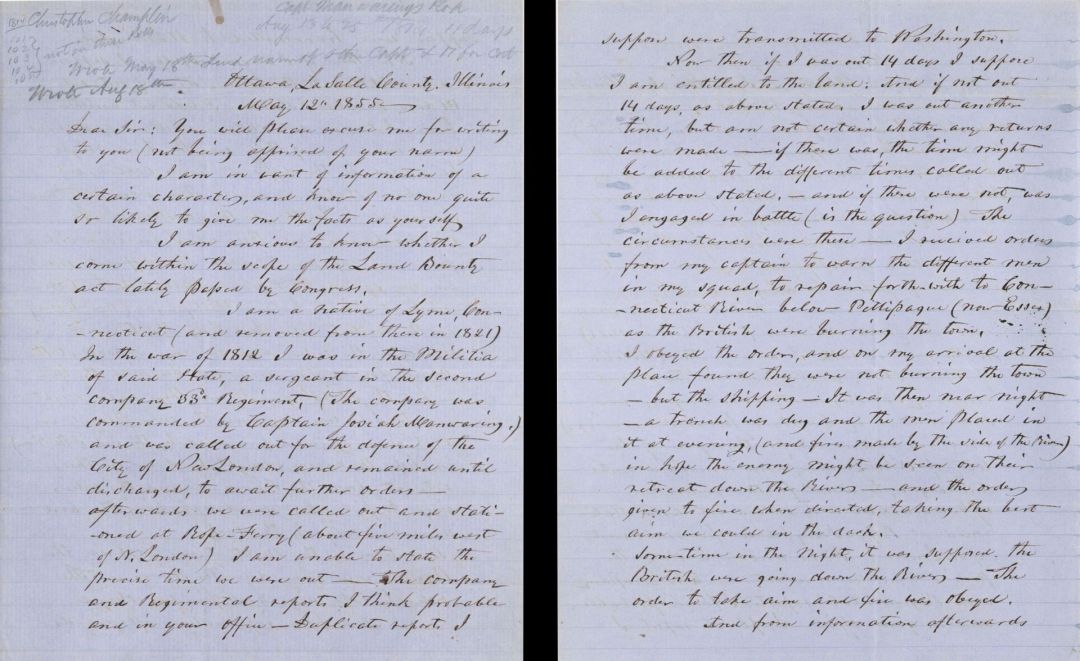 1814 Christopher Champlin
Capt Manwarings Roll
Aug 13 to 25
not on their Roll
Wrote May 18th
Wrote Aug 18th
Ottawa, La Salle County, Illinois
May 12th 1855
Dear Sir: You will please excuse me for writing
to you (not being apprised of your name)
I am in want of information of a
certain character, and know of no one quite
so likely to give me the facts as yourself
I am anxious to know whether I
come within the scope of the Land Bounty
act lately passed by Congress.
I am a native of Lyme, Con-
-necticut (and removed from there in 1821)
In the war of 1812 I was in the Militia
of said State, a sergeant in the second
company 33d Regiment, (The company was
commanded by Captain Josiah Manwaring.)
and was called out for the defence of the
City of New London, and remained until
discharged, to await further orders —
afterwards we were called out and stati-
-oned at Rope-Ferry (about five miles west
of N. London) I am unable to state the
precise time we were out — The company
and Regimental reports I think probable
are in your office — Duplicate reports I
suppose were transmitted to Washington.
Now then if I was out 14 days I suppose
I am entitled to the land: And if not out
14 days, as above stated, I was out another
time, but am not certain whether any returns
were made — if there was, the time might
be added to the different times called out
as above stated, — and if there were not, was
I engaged in battle (is the question) The
circumstances were these — I received orders
from my captain to warn the different men
in my squad, to repair forth-with to Con-
-necticut River below Pettipague (now Essex)
as the British were burning the town.
I obeyed the orders, and on my arrival at the
place found they were not burning the town
— but the shipping — It was then near night
— a trench was dug and the men placed in
it at evening, (and fires made by the side of the River)
in hope the enemy might be seen on their
retreat down the River — and the orders
given to fire when directed, taking the best
aim we could in the dark.
Some-time in the Night, it was supposed the
British were going down the River — The
order to take aim and fire was obeyed.
And from information afterwards